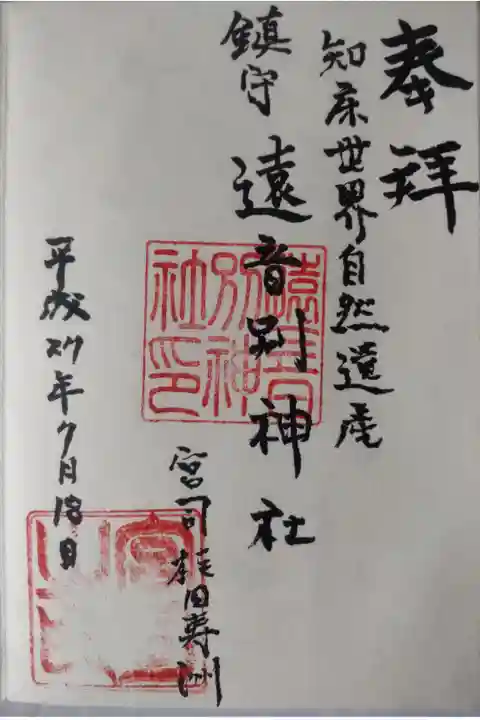 奉拝
知床世界自然遺産
鎮守
遠音別神社
遠音別神社印
宮司 田寿洲
平成27年7月18日